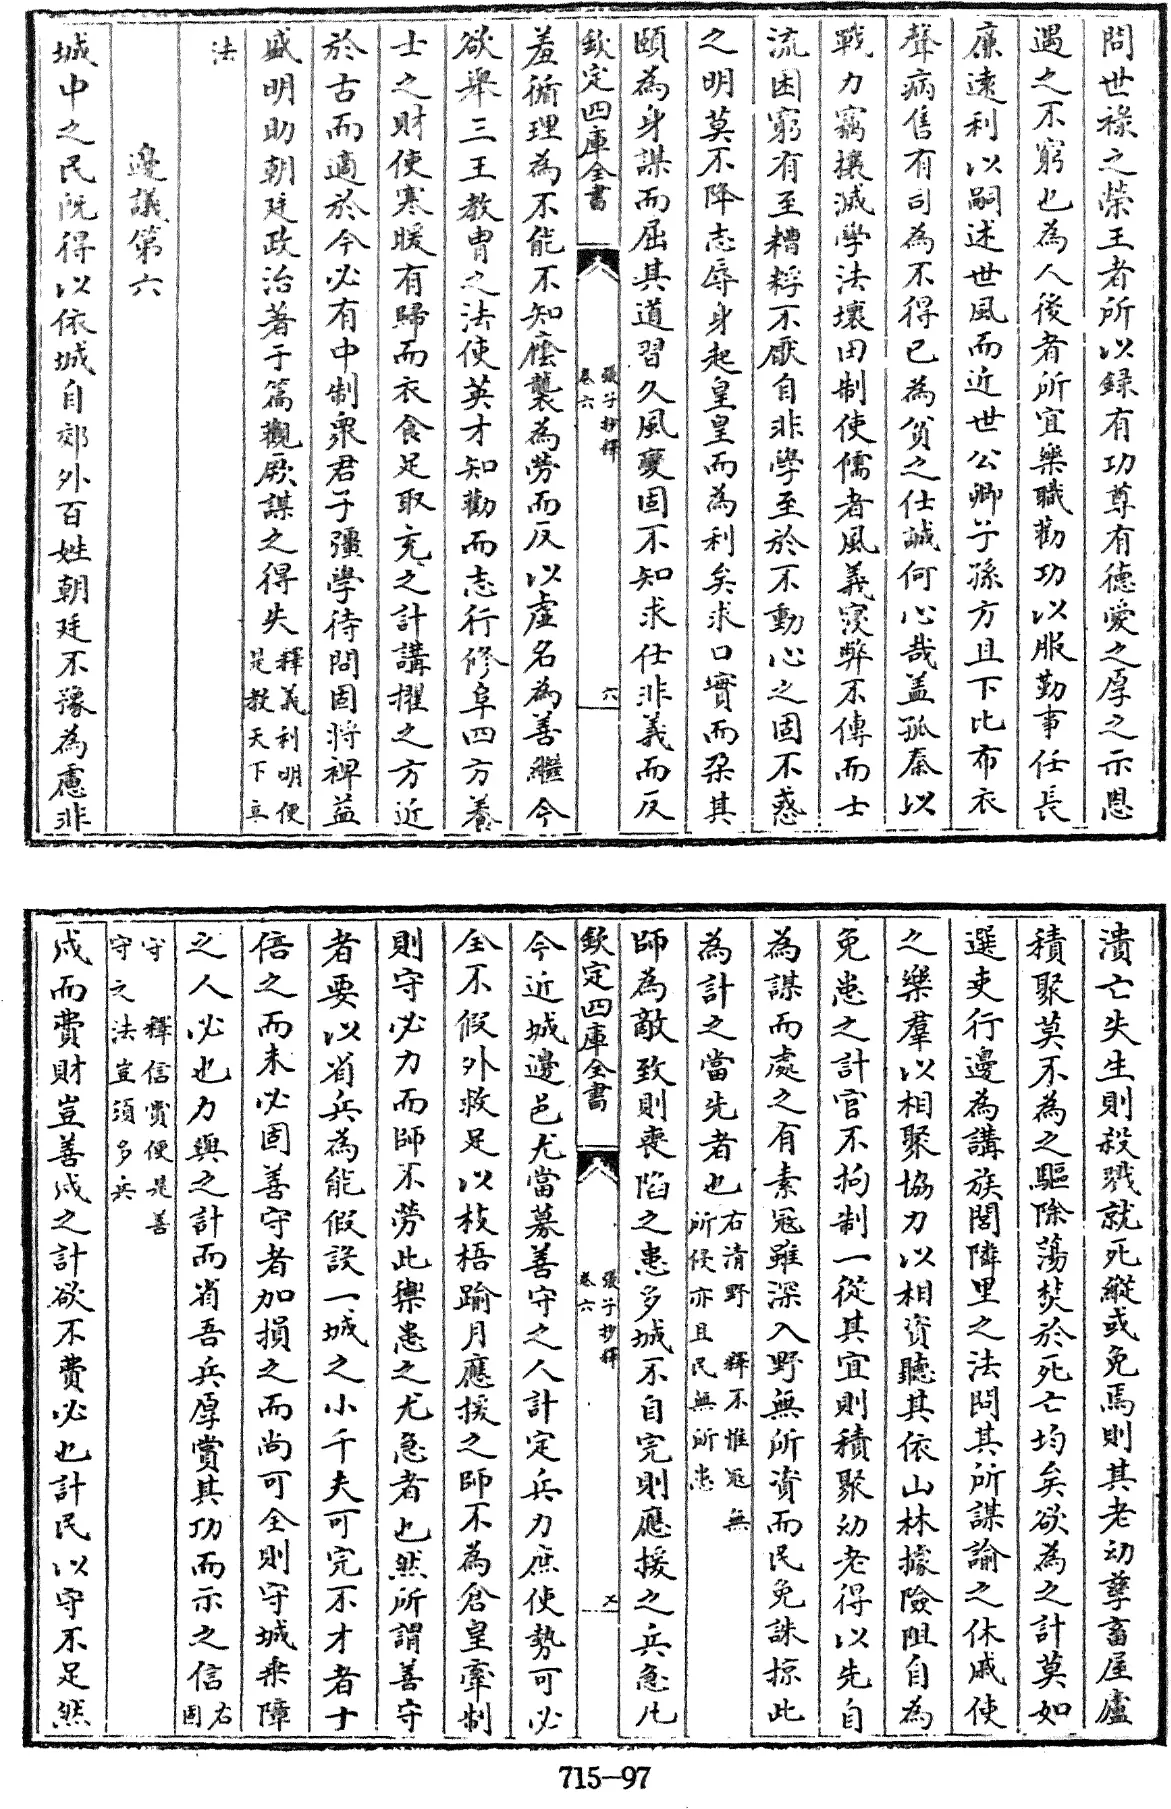 問世祿之榮王者所以録有功尊有德愛之厚之示恩
遇之不窮也為人後者所宜樂職勸功以服勤事任長
廉逺利以嗣述世風而近世公卿子孫方且下比布衣
聲病售有司為不得已為貧之仕誠何心哉蓋孤秦以
戰力竊攘滅學法壞田制使儒者風義寖弊不傳而士
流困窮有至糟粰不厭自非學至於不動心之固不惑
之明莫不降志辱身起皇皇而為利矣求口實而朶其
頤為身謀而屈其道習久風變固不知求仕非義而反
欽定四庫全書
張子抄釋
卷六
六
羞循理為不能不知廕襲為勞而反以虛名為善繼今
欲舉三王教胄之法使英才知勸而志行修阜四方養
士之財使寒暖有歸而衣食足取充之計講擢之方近
於古而適於今必有中制衆君子彊學待問固將裨益
盛明助朝廷政治著于篇觀厥謀之得失
釋義利明便
是教天下立
法
邊議第六
城中之民旣得以依城自郊外百姓朝廷不豫為慮非
潰亡失生則殺戮就死縱或免焉則其老幼孳畜屋廬
積聚莫不為之驅除蕩焚於死亡均矣欲為之計莫如
選吏行邊為講族閭隣里之法問其所謀諭之休戚使
之樂羣以相聚協力以相資聽其依山林據險阻自為
免患之計官不拘制一從其宜則積聚幼老得以先自
為謀而處之有素冦雖深入野無所資而民免誅掠此
為計之當先者也
右清野 釋不惟冦無
所侵亦且民無所患
師為敵致則喪陷之患多城不自完則應援之兵急凡
欽定四庫全書
張子抄釋
卷六
七
今近城邊邑尤當募善守之人計定兵力庶使勢可必
全不假外救足以枝梧踰月應援之師不為倉皇牽制
則守必力而師不勞此禦患之尤急者也然所謂善守
者要以省兵為能假設一城之小千夫可完不才者十
倍之而未必固善守者加損之而尚可全則守城乘障
之人必也力與之計而省吾兵厚賞其功而示之信
右
固
守 釋信賞便是善
守之法豈須多兵
戍而費財豈善戍之計欲不費必也計民以守不足然
715-97